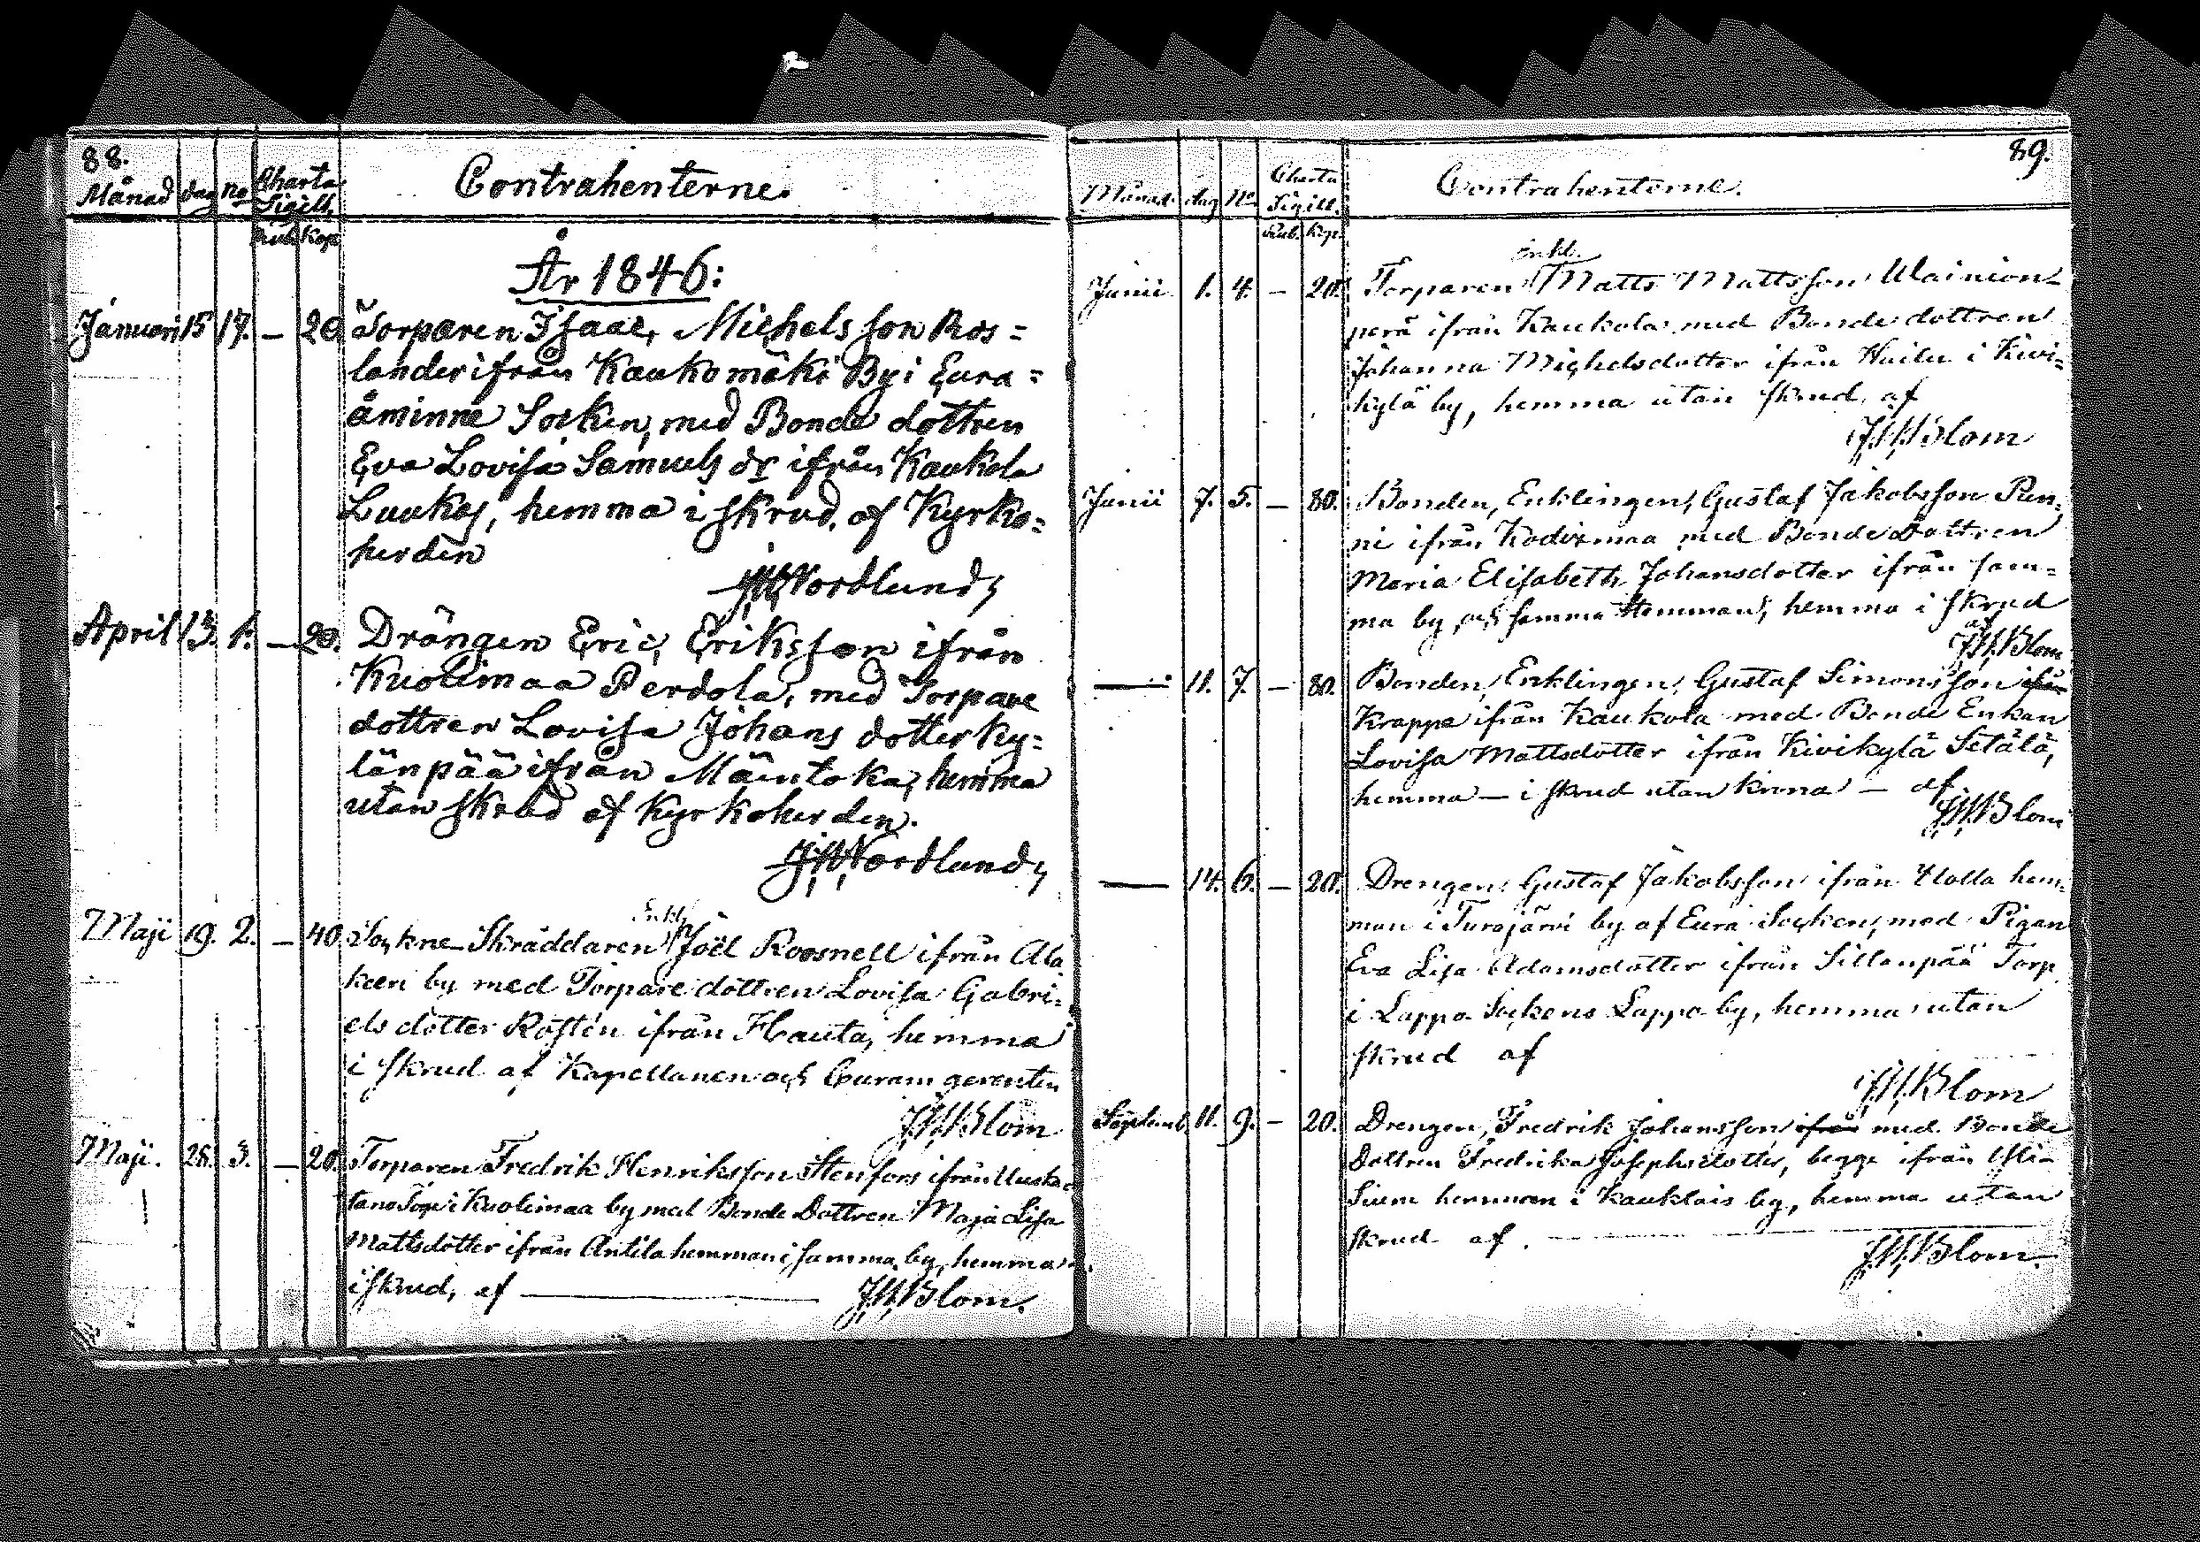 88.
Månad dag No Charta Sigill. Contrahenterne.
Rub Kop
År 1846:
Januari 15 17. — 20 Torparen Isaac, Michelsson Ros=
lander ifrån Kaukomäki By i Eura=
åminne Socken, med Bonde dottren
Eva Lovisa Samuels dr ifrån Kaukola
Luukas, hemma i skrud, af Kyrko=
herden
J W Nordlund
April 13. 1. — 20. Drängen Eric, Eriksson ifrån
Kuolimaa Perdola, med Torpare
dottren Lovisa Johans dotter Ky=
länpää ifrån Mäntoka, hemma
utan skrud af Kyrkoherden.
J W Nordlund
Enkl.
Maji 19. 2. — 40. Sockne Skräddaren Joël Roosnell ifrån Ala
keen by med Torpare dottren Lovisa Gabri=
els dotter Rostén ifrån Hauta, hemma
i skrud af Kapellanen och Curam gerenten
J W Blom
Maji. 28. 3. — 20. Torparen Fredrik Henriksson Stenfors ifrån
i Kuolimaa by med Bonde Dottren Maja Lisa
Mattsdotter ifrån Antila hemman i samma by, hemma
i skrud, af — J W Blom.
89.
Månad dag No Charta Sigill. Contrahenterne.
Rub. Kop.
Enkl.
Junii 1. 4. — 20. Torparen Matts Mattsson Wainion
perä ifrån Kaukola med Bonde dottren
Johanna Michelsdotter ifrån i Kivi=
kylä by, hemma utan skrud, af
J W Blom
Junii 7. 5. — 80. Bonden, Enklingen, Gustaf Jakobsson Pen
ni ifrån Kodixmaa med Bonde Dottren
Maria Elisabeth Johansdotter ifrån sam=
ma by och samma Hemman, hemma i skrud
af J W Blom
— 11. 7. — 80. Bonden, Enklingen, Gustaf Simonsson ifrån
Krappe ifrån Kaukola med Bonde Enkan
Lovisa Mattsdotter ifrån Kivikylä Setälä,
hemma — i skrud utan krona — af
J W Blom
— 14. 6. — 20. Drengen Gustaf Jakobsson ifrån hem=
man i Turajärvi by af Eura Socken, med Pigan
Eva Lisa Adamsdotter ifrån Sillanpää Torp
i Lappo Sockens Lappo by, hemma utan
skrud af
J W Blom
Septemb. 11. 9. — 20. Drengen, Fredrik Johansson ifrån med Bonde
Dottren Fredrika Josephsdotter, begge ifrån Yli=
Siuru hemman i Kauklais by, hemma utan
skrud af. —
J W Blom.